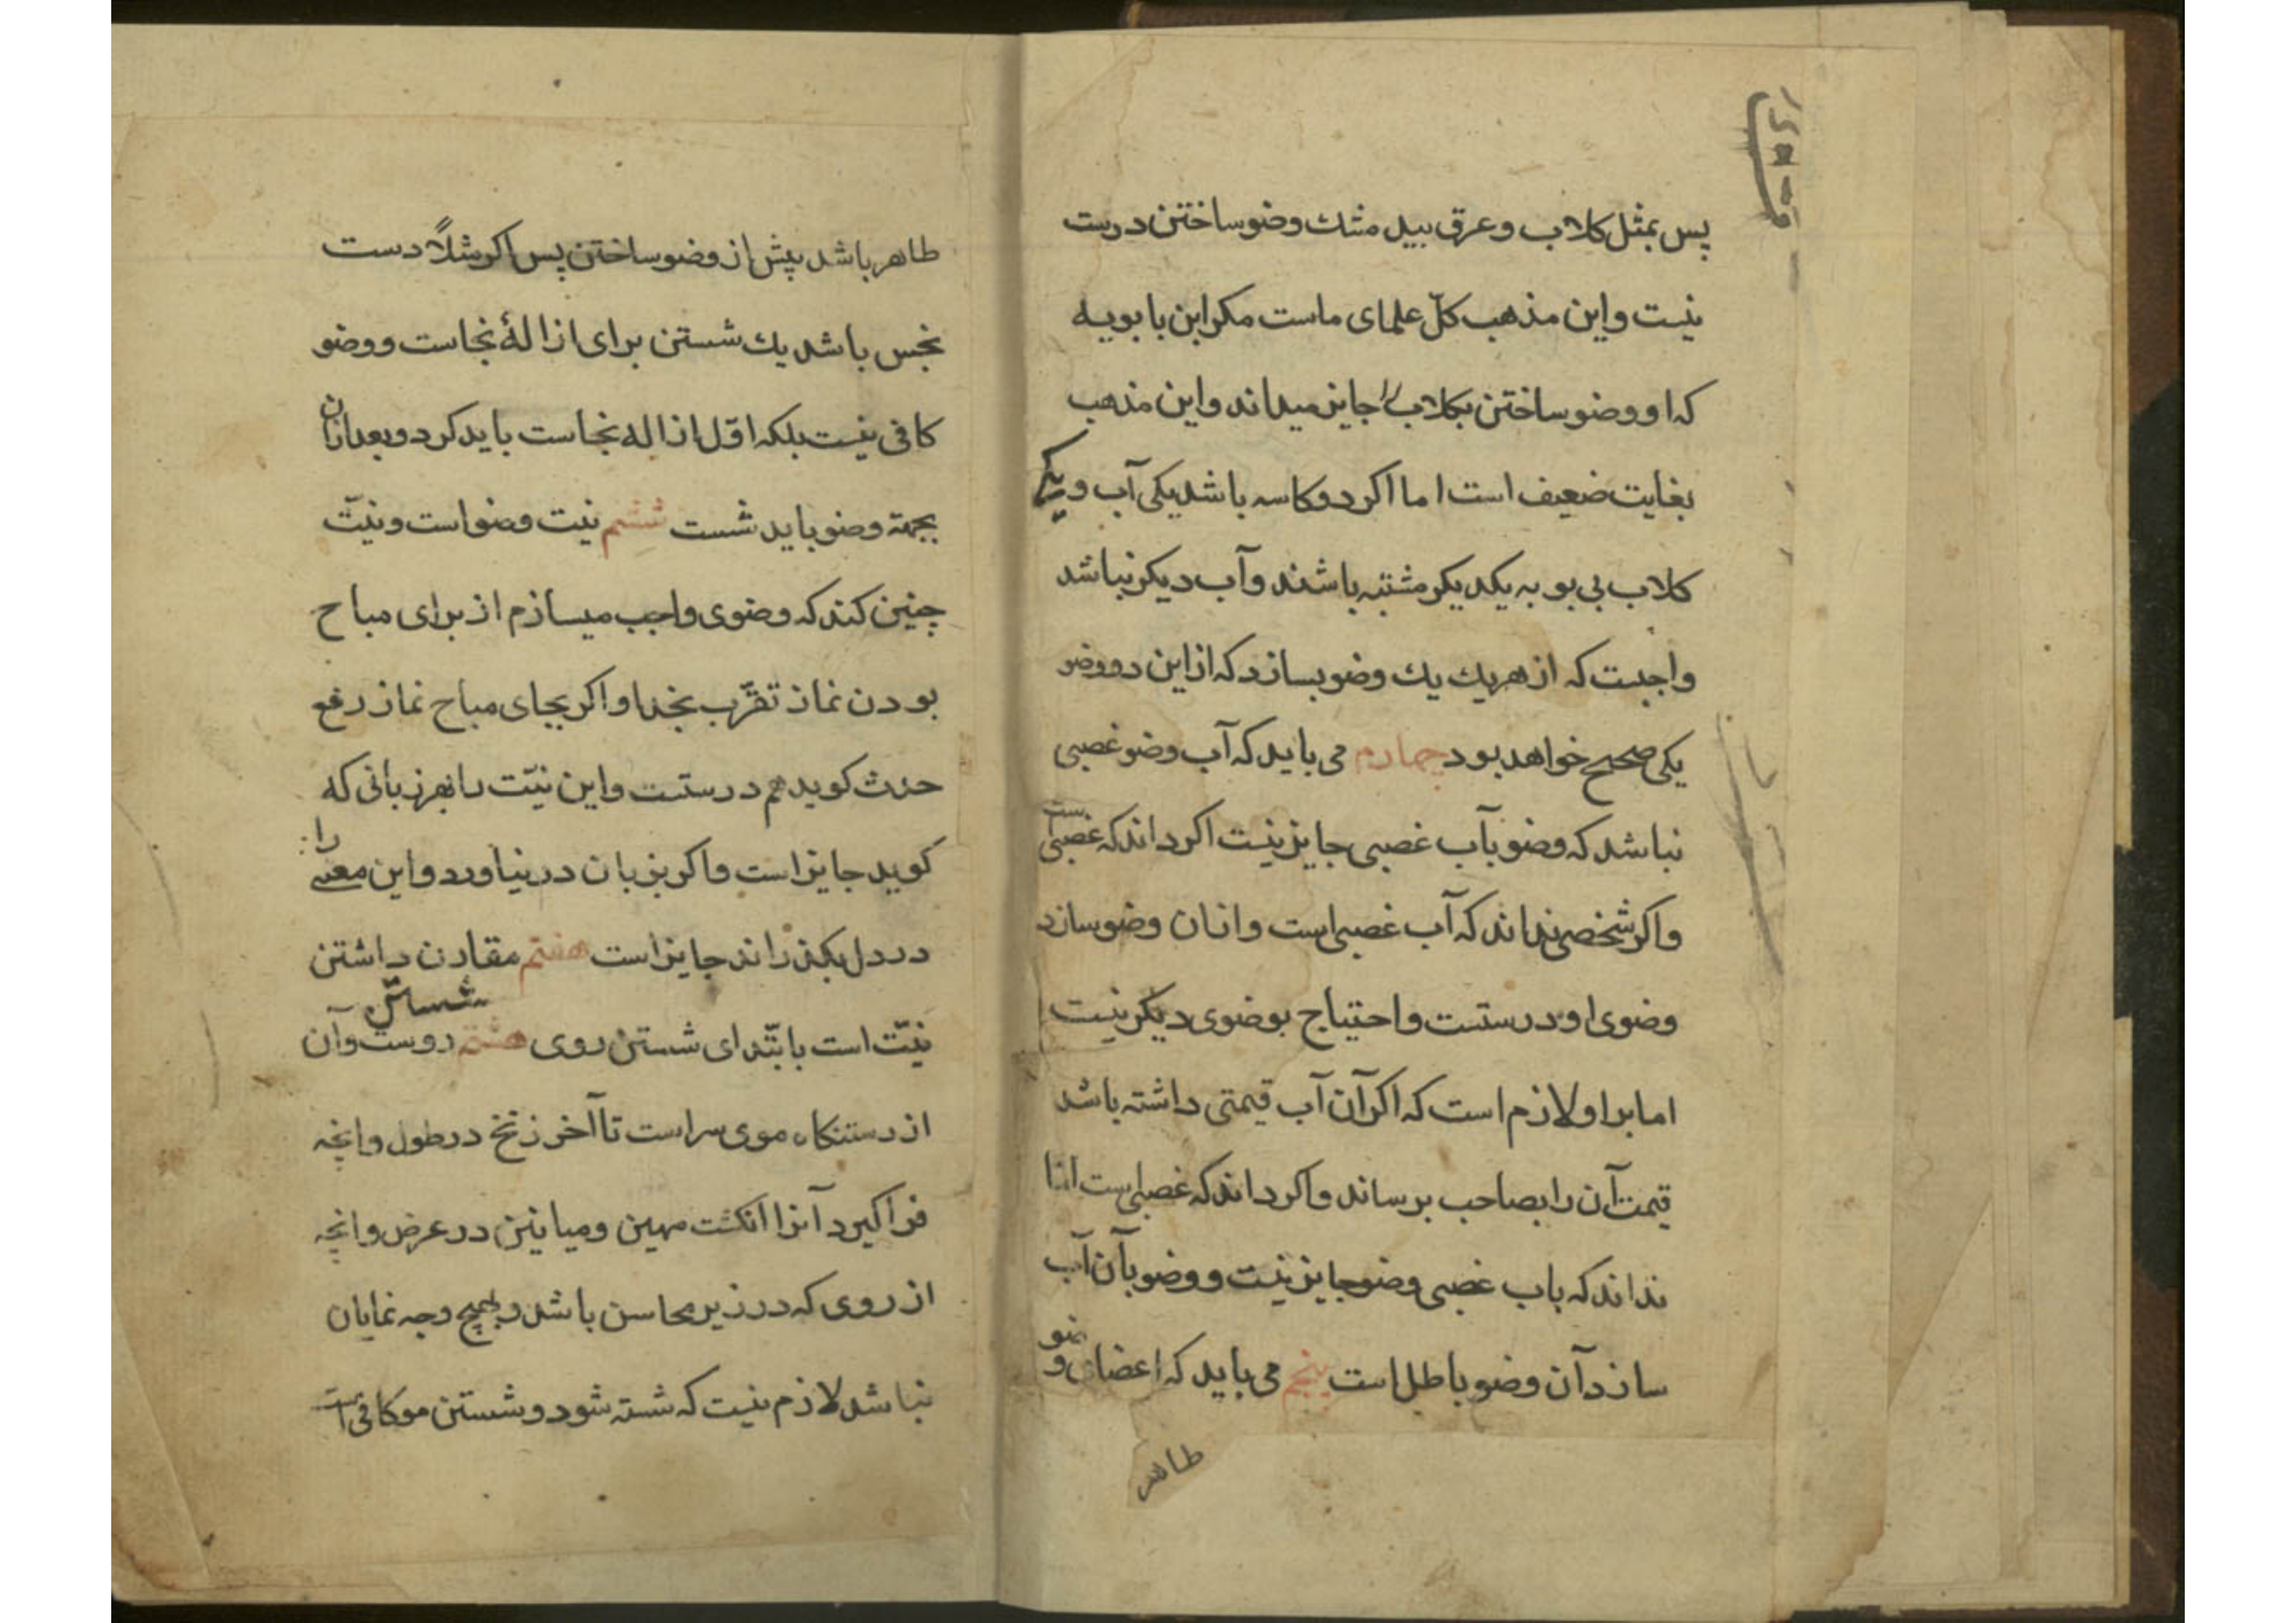 پس بمثل کلاب و عرق بید مشک وضو ساختن درست
نیست و این مذهب کلّ علمای ماست مکر ابن بابویه
که او وضو ساختن بکلاب را جایز میداند و این مذهب
بغایت ضعیف است اما اکر دو کاسه باشد یکی آب و یکی
کلاب بی بو به یکدیکر مشتبه باشند و آب دیکر نباشد
واجبست که از هر یک یک وضو بسازد که از این دو وضو
یکی صحیح خواهد بود چهارم می باید که آب وضو غصبی
نباشد که وضو بآب غصبی جایز نیست اکر داند که غصبی است
و اکر شخصی نداند که آب غصبی است و از ان وضو سازد
وضوی او درستست و احتیاج بوضوی دیکر نیست
اما بر او لازم است که اکر آن آب قیمتی داشته باشد
قیمت آن را بصاحب برساند و اکر داند که غصبی است اما
نداند که باب غصبی وضو جایز نیست و وضو بآن آب
سازد آن وضو باطل است پنجم می باید که اعضای وضو
طاهر
طاهر باشد پیش از وضو ساختن پس اکر مثلاً دست
نجس باشد یک شستن برای ازالۀ نجاست و وضو
کافی نیست بلکه اوّل ازاله نجاست باید کرد و بعد از آن
بجهة وضو باید شست ششم نیت وضو است و نیّت
چنین کند که وضوی واجب میسازم از برای مباح
بودن نماز تقرّب بخدا و اکر بجای مباح نماز رفع
حدث کوید هم درستست و این نیّت را بهر زبانی که
کوید جایز است و اکر بزبان در نیاورد و این معنی را
در دل بکذراند جایز است هفتم مقارن داشتن
نیّت است بابتدای شستن روی هشتم شستن روست و آن
از رستنکاه موی سر است تا آخر زنخ در طول و انچه
فرا کیرد آنرا انکشت مهین و میانین در عرض و انچه
از روی که در زیر محاسن باشد و بهیچ وجه نمایان
نباشد لازم نیست که شسته شود و شستن مو کافی است